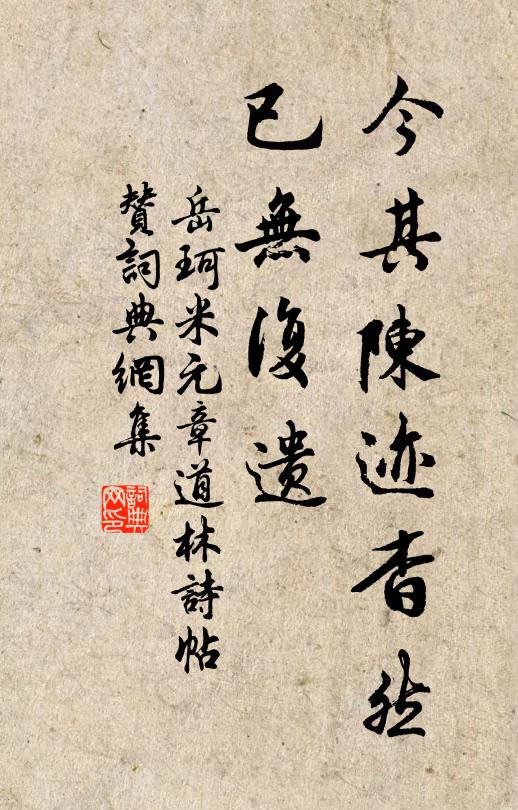 今其陳迹杳然
已無復遺
岳珂米元章道林詩帖
賛詞典網集
詞典
网印